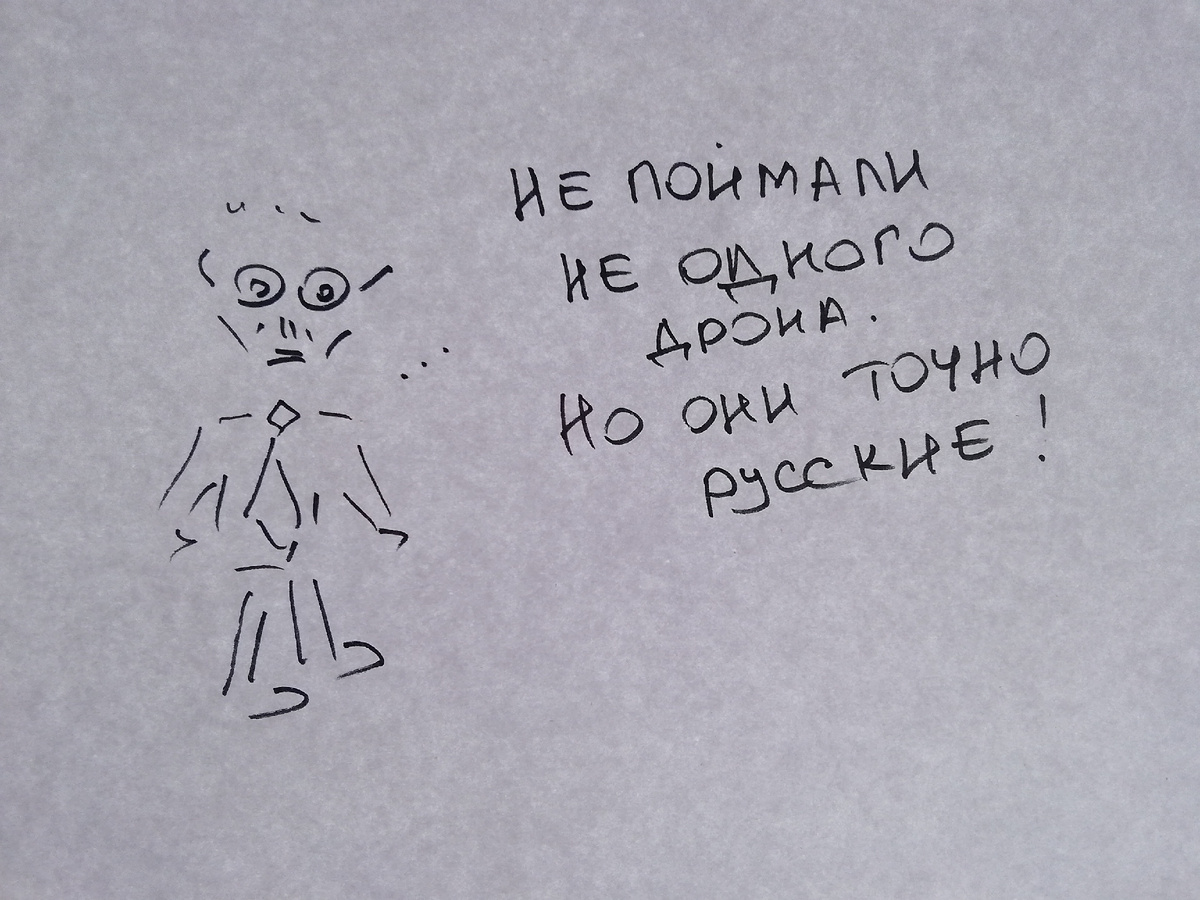 НЕ ПОЙМАЛИ
НЕ ОДНОГО
ДРОНА.
НО ОНИ ТОЧНО
РУССКИЕ!